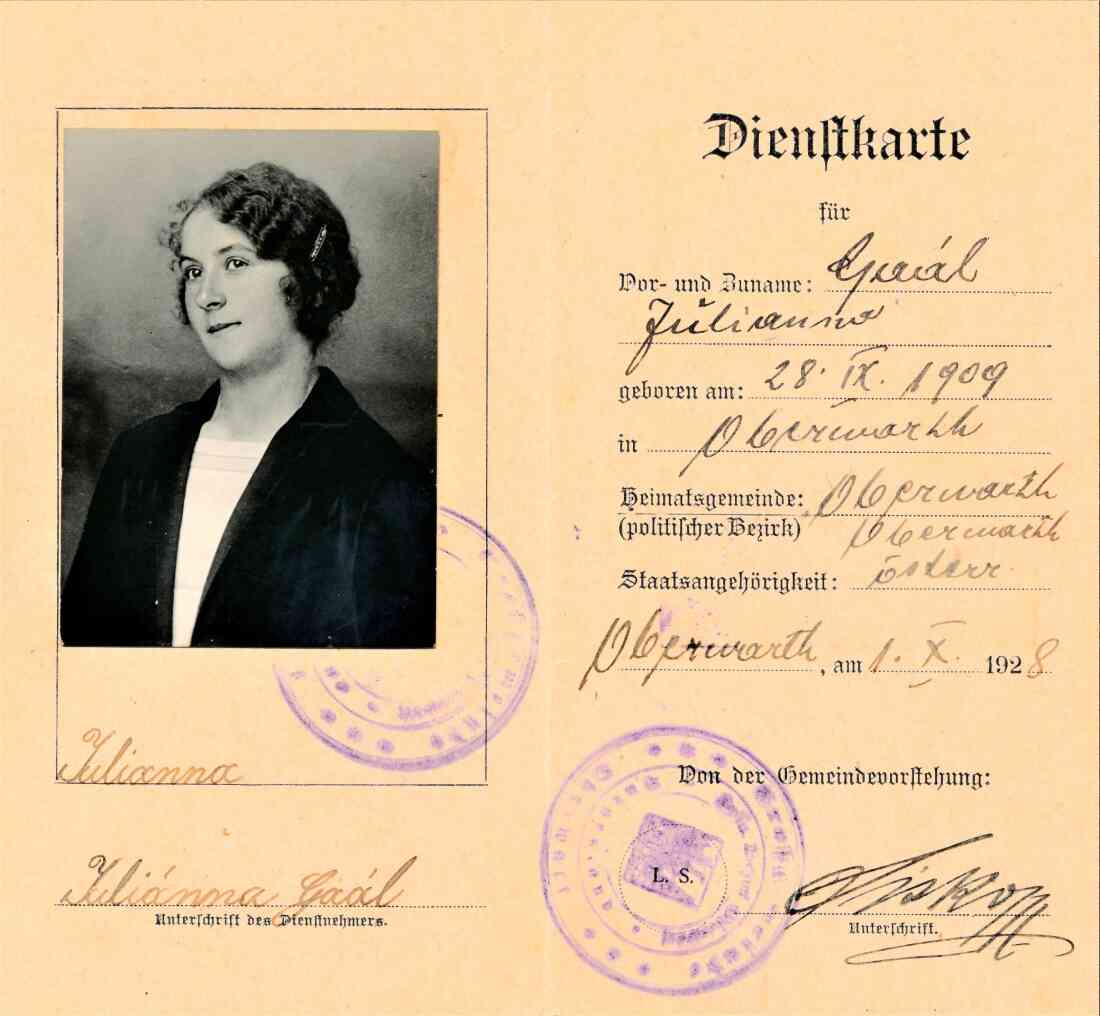 Julianna
Juliánna Gaál
Unterschrift des Dienstnehmers.
Dienstkarte
für
Vor- und Zuname: Gaál
Julianna
geboren am: 28. IX. 1909
in Oberwarth
Heimatsgemeinde: Oberwarth
(politischer Bezirk) Oberwarth
Staatsangehörigkeit: österr.
Oberwarth, am 1. X. 1928
Von der Gemeindevorstehung:
L. S.
Unterschrift.